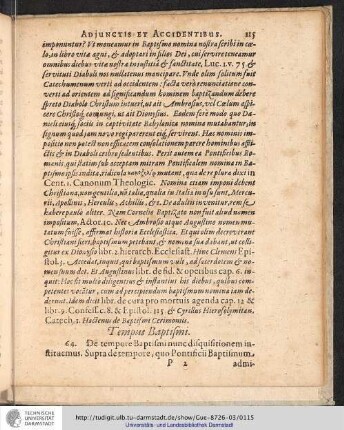 ADJUNCTIS ET ACCIDENTIBUS. 115
imponuntur? Ut moneamur in Baptismo nomina nostra scribi in cœ-
lo, in libro vitæ agni, & adoptari in filios Dei, cui servire teneamur
omnibus diebus vitæ nostræ in justitia & sanctitate, Luc. 1. v. 75 &
servituti Diaboli nos nullatenus mancipare. Unde olim solitum fuit
Catechumenum verti ad occidentem: facta verò renunciatione con-
verti ad orientem ad significandum hominem baptizandum debere
spreto Diabolo Christum intueri, ut ait Ambrosius, vel Cœlum aspi-
cere Christoq; conjungi, ut ait Dionysius. Eadem ferè modo quo Da-
nieli eiusq; sociis in captivitate Babylonica nomina mutabantur, in
signum quod jam novo regi parerent eiq; servirent. Hæc nominis im-
positio non potest non efficacem consolationem parere hominibus affli-
ctis & in Diaboli cribro sedentibus. Perit autem ea Pontificibus Ro-
manis, qui statim sub acceptam mitram Pontificalem nomina in Ba-
ptismo ipsis indita, ridicula mutant, qua de re plura dixi in
Cent. 1. Canonum Theologic. Nomina etiam imponi debent
Christiana, non gentilia,
rii, Apollinis, Herculis, Achillis, &c. De adultis invenitur, rem se
habere paulo aliter. Nam Cornelio Baptizato non fuit aliud nomen
impositum, Actor. 10. Nec Ambrosio atque Augustino nomen mu-
tatum fuisse, affirmat historia Ecclesiastica. Et qui olim decreverant
Christiani fieri, baptismum petebant, & nomina sua dabant, ut colli-
gitur ex Dionysio libr. 2. hierarch. Ecclesiast. Hinc Clemens Epi-
stol. 3. Accedat, inquit, qui baptismum vult, ad sacerdotem & no-
men suum det. Et Augustinus libr. de fid. & operibus cap. 6. in-
quit: Hoc fit multò diligentius & instantius his diebus, quibus com-
petentes vocitur, cum ad percipiendum baptismum nomina jam de-
derunt. Idem dicit libr. de cura pro mortuis agenda cap. 12 &
libr. 9. Confess. c. 8. & Epistol. 115 & Cyrillus Hierosolymitan.
Catech. 1. Hactenus de Baptismi Ceremoniis.
Tempus Baptismi.
64. De tempore Baptismi nunc disquisitionem in-
stituemus. Supra de tempore, quo Pontificii Baptismum
P 2 admi-
TECHNISCHE
UNIVERSITÄT
DARMSTADT
http://tudigit.ulb.tu-darmstadt.de/show/Guc-8726-03/0115
Universitäts- und Landesbibliothek Darmstadt